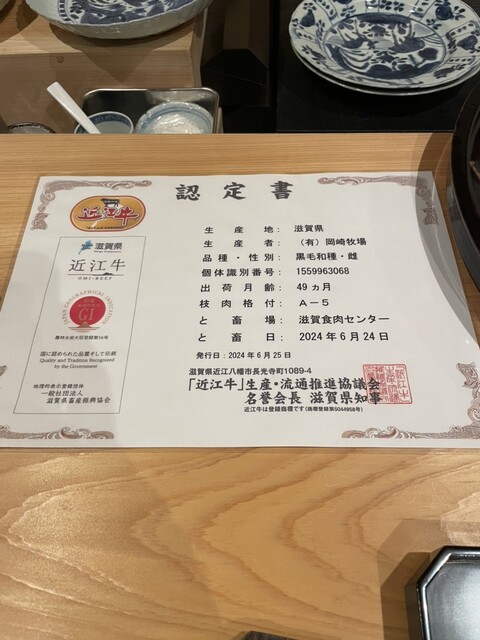 認定書
近江牛
滋賀県
Shiga Prefecture
近江牛
OMI-BEEF
JAPAN GEOGRAPHICAL INDICATION
GI
農林水産大臣登録第56号
国に認められた品質そして伝統
Quality and Tradition Recognized
by the Government
地理的表示登録団体
一般社団法人
滋賀県畜産振興協会
生産地： 滋賀県
生産者： （有）岡崎牧場
品種・性別： 黒毛和種・雌
個体識別番号： 1559963068
出荷月齢： 49ヵ月
枝肉格付： A－5
と畜場： 滋賀食肉センター
と畜日： 2024年6月24日
発行日：2024年6月25日
滋賀県近江八幡市長光寺町1089-4
「近江牛」生産・流通推進協議会
名誉会長 滋賀県知事
近江牛は登録商標です（商標登録第5044958号）